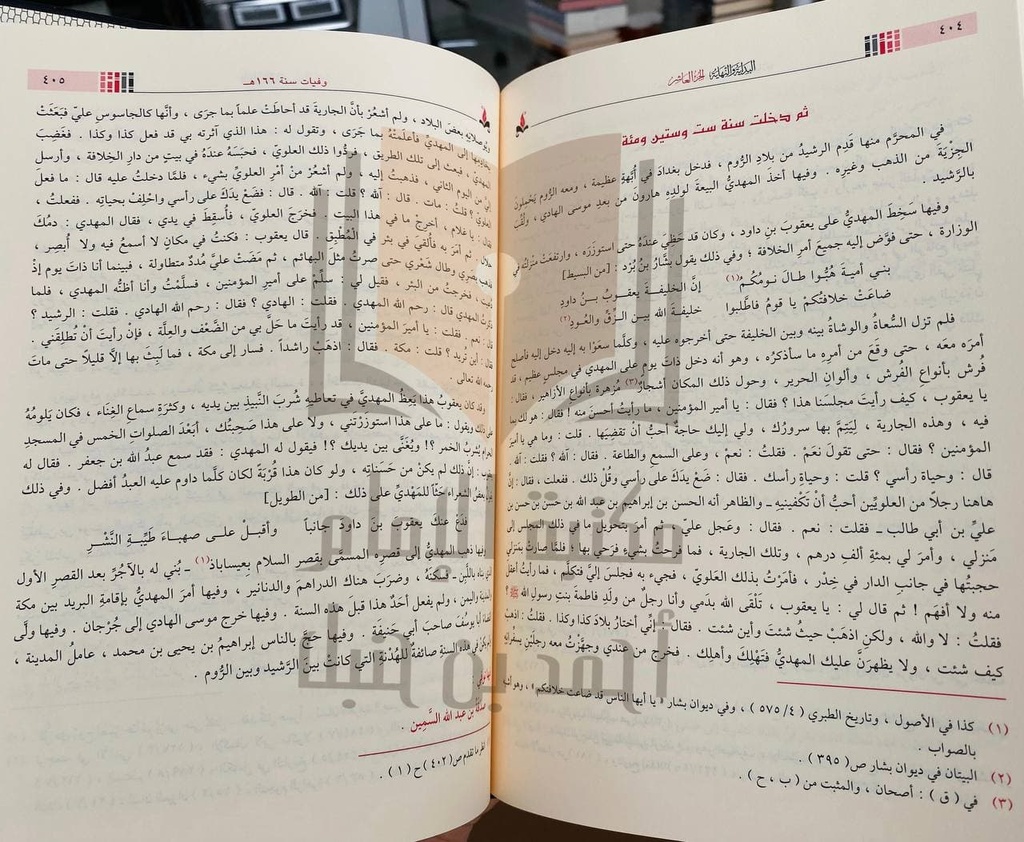 ٤٠٤
البداية والنهاية الجزء العاشر
ثم دخلت سنة ست وستين ومئة
في المحرَّم منها قَدِم الرشيدُ من بلادِ الرُّوم ، فدخل بغدادَ في أُبَّهةٍ عظيمة ، ومعه الرُّوم يَحْمِلونَ
الجِزْيَةَ من الذهب وغيرِه . وفيها أخذَ المهديُّ البيعةَ لولدِهِ هارونَ من بعدِ موسى الهادي ، ولُقِّبَ
بالرَّشيد .
وفيها سَخِطَ المهديُّ على يعقوبَ بنِ داود ، وكان قد حَظِيَ عندَهُ حتى استوزَرَه ، وارتفعَتْ منزلتُه في
الوزارة ، حتى فوَّضَ إليه جميعَ أمرِ الخلافة ؛ وفي ذلك يقول بشَّارُ بنُ بُرْد : [من البسيط]
بني أميةَ هُبُّوا طالَ نومُكُم (١) إنَّ الخليفةَ يعقوبُ بنُ داودِ
ضاعَتْ خلافتُكم يا قومُ فاطلُبوا خليفةَ الله بين الزِّقِّ والعُودِ(٢)
فلم تزلِ السُّعاةُ والوشاةُ بينه وبين الخليفة حتى أخرجوه عليه ، وكلَّما سعَوْا به إليه دخل إليه فأصلح
أمرَه معَه ، حتى وقَعَ من أمرِه ما سأذكرُه ، وهو أنه دخل ذاتَ يومٍ على المهدي في مجلسٍ عظيم ، قد
فُرش بأنواعِ الفُرش ، وألوانِ الحرير ، وحول ذلك المكان أشجارٌ(٣) مُزهرة بأنواعِ الأزاهير ، فقال :
يا يعقوب ، كيف رأيتَ مجلسَنا هذا ؟ فقال : يا أمير المؤمنين ، ما رأيتُ أحسنَ منه ! فقال : هو لك بما
فيه ، وهذه الجارية ، لِيَتِمَّ بها سرورُك ، ولي إليك حاجةٌ أحبُّ أنْ تقضِيَها . قلت : وما هي يا أميرَ
المؤمنين ؟ فقال : حتى تقولَ نَعَمْ . فقلتُ : نعمْ ، وعلى السمع والطاعة . فقال : آلله ؟ فقلت : آلله .
قال : وحياةِ رأسي ؟ قلت : وحياةِ رأسِك . فقال : ضَعْ يدَكَ على رأسي وقُلْ ذلك . ففعلت ، فقال : إنَّ
هاهنا رجلًا من العلويِّين أحبُّ أنْ تَكْفينيهِ ـ والظاهر أنه الحسن بن إبراهيم بن عبد الله بن حسن بن حسن بن
عليِّ بن أبي طالب ـ فقلت : نعم . فقال : وعجل عليَّ . ثم أمَرَ بتحويلِ ما في ذلك المجلس إلى
مَنزلي ، وأمرَ لي بمئةِ ألفِ درهم ، وتلك الجارية ، فما فرحتُ بشيءٍ فرَحي بها ؛ فلمَّا صارتْ بمنزلي
حجبتُها في جانبِ الدار في خِدْر ، فأمَرْتُ بذلك العَلَويّ ، فجيء به فجلسَ إليَّ فتكلَّم ، فما رأيتُ أعقلَ
منه ولا أفهَم ! ثم قال لي : يا يعقوب ، تَلْقَى الله بدَمي وأنا رجلٌ من ولَدِ فاطمةَ بنتِ رسولِ الله ﷺ ؟
فقلتُ : لا والله ، ولكنِ اذهَبْ حيثُ شئتَ وأين شئت . فقال : إنِّي أختارُ بلادَ كذا وكذا . فقلتُ : اذهَبْ
كيف شئت ، ولا يظهرَنَّ عليك المهديُّ فتَهْلِكَ وأهلِك . فخرج من عندي وجهَّزتُ معه رجلَيْنِ يسفِّرانِه
(١) كذا في الأصول ، وتاريخ الطبري (٤/ ٥٧٥) ، وفي ديوان بشار « يا أيها الناس قد ضاعت خلافتكم » ، وهو أشبه
بالصواب .
(٢) البيتان في ديوان بشار ص(٣٩٥) .
(٣) في ( ق ) : أصحان ، والمثبت من ( ب ، ح ) .
٤٠٥
وفيات سنة ١٦٦هـ
بعضَ البلاد ، ولم أشعُرْ بأنَّ الجاريةَ قد أحاطَتْ علماً بما جرَى ، وأنَّها كالجاسوسِ عليّ فبَعَثَتْ
إلى المهديِّ فأعلَمَتْهُ بما جَرَى ، وتقول له : هذا الذي آثرته بي قد فعل كذا وكذا . فغَضِبَ
المهديّ ، فبعث إلى تلك الطريق ، فردُّوا ذلك العلويّ ، فحبَسَهُ عندَهُ في بيتٍ من دارِ الخلافة ، وأرسل
إليَّ من اليوم الثاني ، فذهبتُ إليه ، ولم أشعُرْ منْ أمْرِ العلويِّ بشيء ، فلمَّا دخلتُ عليه قال : ما فعلَ
العلويّ ؟ قلتُ : مات . قال : آلله ؟ قلت : آلله . قال : فضَعْ يدَكَ على رأسي واحْلِفْ بحياتِه . ففعلتُ ،
فقال : يا غلام ، أخرِجْ ما في هذا البيت . فخرَجَ العلويّ ، فأُسقطَ في يدي ، فقال المهدي : دمُك
حلال . ثم أمَرَ به فأُلقِيَ في بئرٍ في المُطْبِق . قال يعقوب : فكنتُ في مكانٍ لا أسمعُ فيه ولا أُبصِر ،
فذهبَ بصَري وطال شعْري حتى صرتُ مثلَ البهائم ، ثم مَضَتْ عليَّ مُدَدٌ متطاولة ، فبينما أنا ذاتَ يوم إذْ
دُعيت ، فخرجتُ من البئر ، فقيل لي : سلِّمْ على أميرِ المؤمنين ، فسلَّمْتُ وأنا أظنُّه المهدي ، فلما
ذكرتُ المهديَّ قال : رحم الله المهدي . فقلت : الهادي ؟ فقال : رحم الله الهادي . فقلت : الرشيد ؟
قال : نعم . فقلت : يا أميرَ المؤمنين ، قد رأيتَ ما حَلَّ بي من الضَّعْف والعِلَّة ، فإنْ رأيتَ أنْ تُطلقَني .
فقال : أين تريد ؟ قلت : مكة . فقال : اذهَبْ راشداً . فسار إلى مكة ، فما لَبِثَ بها إلَّا قليلًا حتى ماتَ
رحمه الله تعالى .
وقد كان يعقوبُ هذا يَعظُ المهديَّ في تعاطيهِ شُربَ النَّبيذِ بين يديه ، وكثرَةِ سماعِ الغِنَاء ، فكان يَلومُهُ
على ذلك ويقول : ما على هذا استوزَرْتَني ، ولا على هذا صَحِبتُك ، أبَعْدَ الصلواتِ الخمسِ في المسجدِ
الحرامِ يُشرَبُ الخمر ؟! ويُغَنَّى بين يديك ؟! فيقول له المهدي : فقد سمع عبدُ الله بن جعفر . فقال له
يعقوب : إنَّ ذلك لم يكنْ من حَسَناتِه ، ولو كان هذا قُرْبَةً لكان كلَّما داوم عليه العبدُ أفضل . وفي ذلك
يقولُ بعضُ الشعراء حَثّاً للمَهْديّ على ذلك : [من الطويل]
فدَعْ عنك يعقوبَ بنَ داودَ جانباً وأقبلْ على صهباءَ طَيِّبَةِ النَّشْرِ
وفيها ذهبَ المهديُّ إلى قصرِهِ المسمَّى بقصرِ السلامِ بعيساباذ(١) ـ بُني له بالآجُرِّ بعد القصر الأول
الذي بناه باللَّبِن ـ فسكَنَهُ ، وضرَبَ هناك الدراهمَ والدنانير ، وفيها أمرَ المهديُّ بإقامةِ البريد بين مكة
والمدينة واليمن ، ولم يفعل أحَدٌ هذا قبلَ هذه السنة . وفيها خرج موسى الهادي إلى جُرْجان . وفيها ولَّى
القضاءَ أبا يوسُفَ صاحبَ أبي حَنيفَة . وفيها حجَّ بالناس إبراهيمُ بن يحيى بن محمد ، عاملُ المدينة ،
ولم يكنْ في هذه السنة صائفةٌ للهُدنةِ التي كانتْ بين الرَّشيد وبين الرُّوم .
صدقةُ بن عبد الله السَّمِين .
انظر ما تقدم ص(٤٠٢) ح (١) .
مكتبة الإمام
أحمد بن حنبل